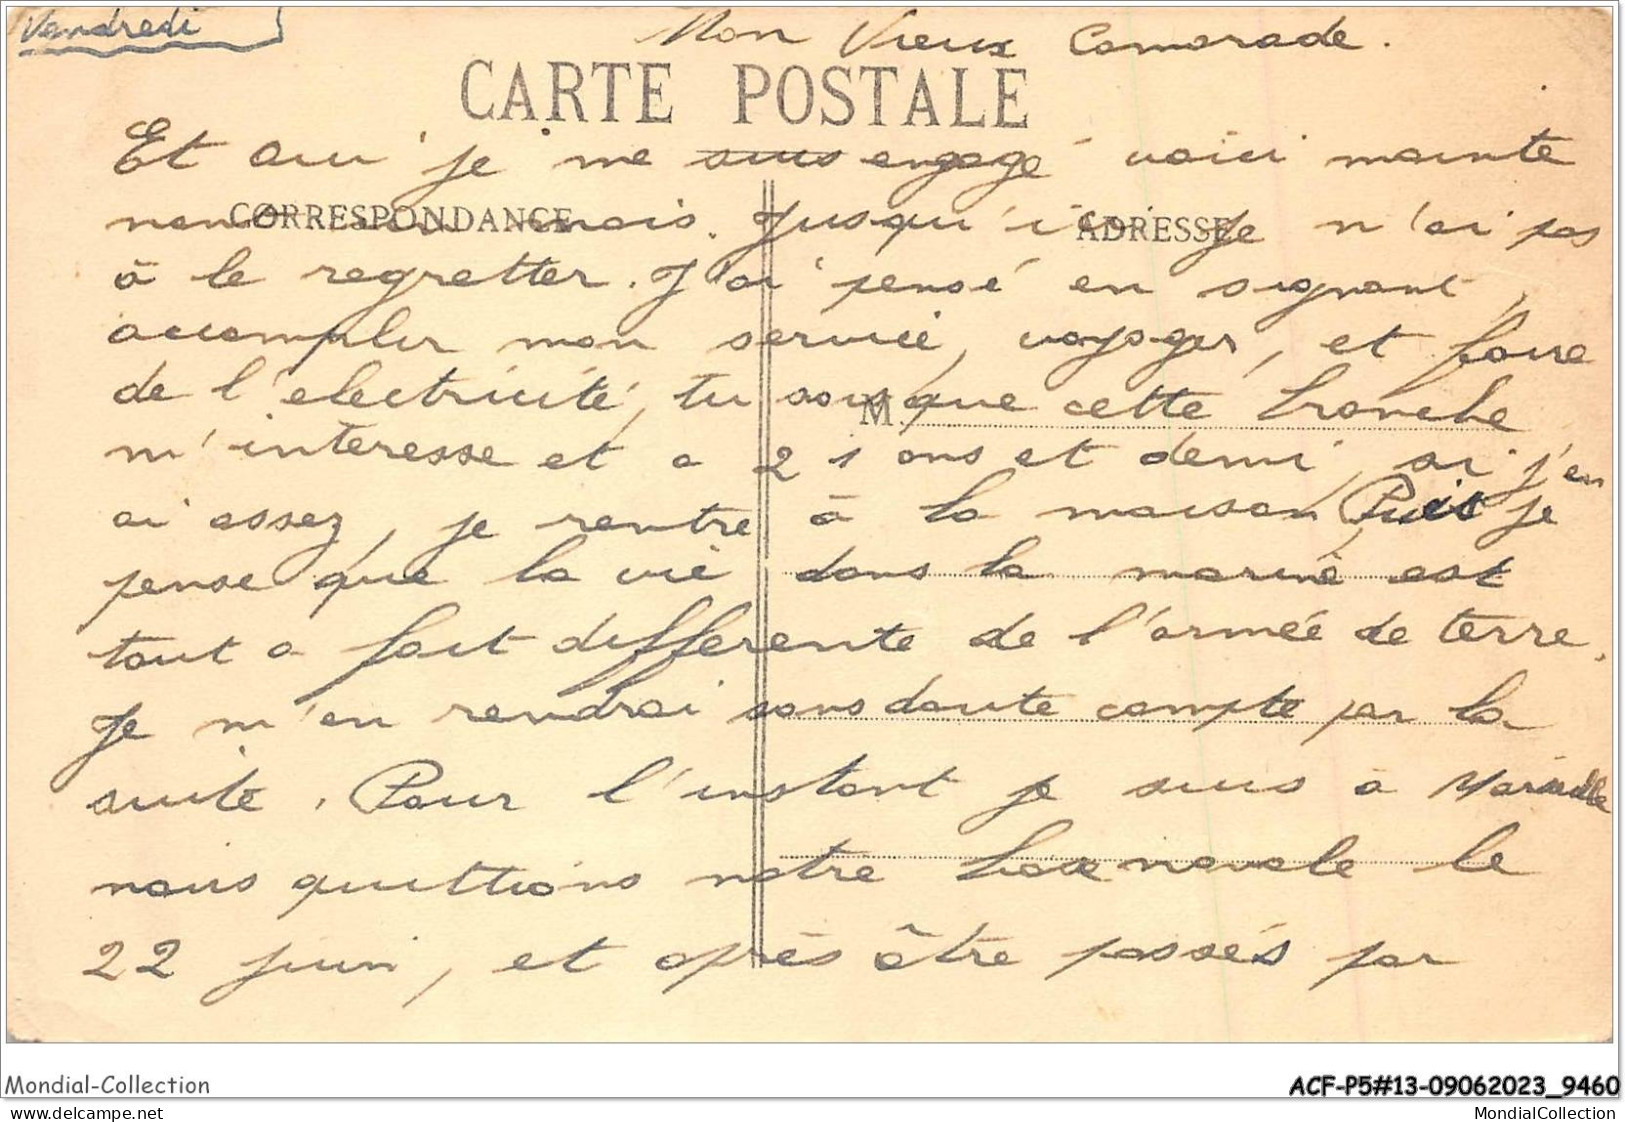 Vendredi
Mon Vieux Camarade.
CARTE POSTALE
Et oui je me suis engagé voici mainte
nant un mois. Jusqu'ici je n'ai pas
CORRESPONDANCE
ADRESSE
à le regretter. J'ai pensé en signant,
accomplir mon service, voyager, et faire
de l'electricité, tu sais que cette branche
M
m'interesse et a 21 ans et demi, si j'en
ai assez, je rentre à la maison, Puis je
pense que la vie dans la marine est
tout a fait differente de l'armée de terre.
Je m'en rendrai sans doute compte par la
suite. Pour l'instant je suis a Marseille
nous quittions notre base navale le
22 juin, et après être passés par
Mondial-Collection
ACF-P5#13-09062023_9460
MondialCollection
delcampe.net